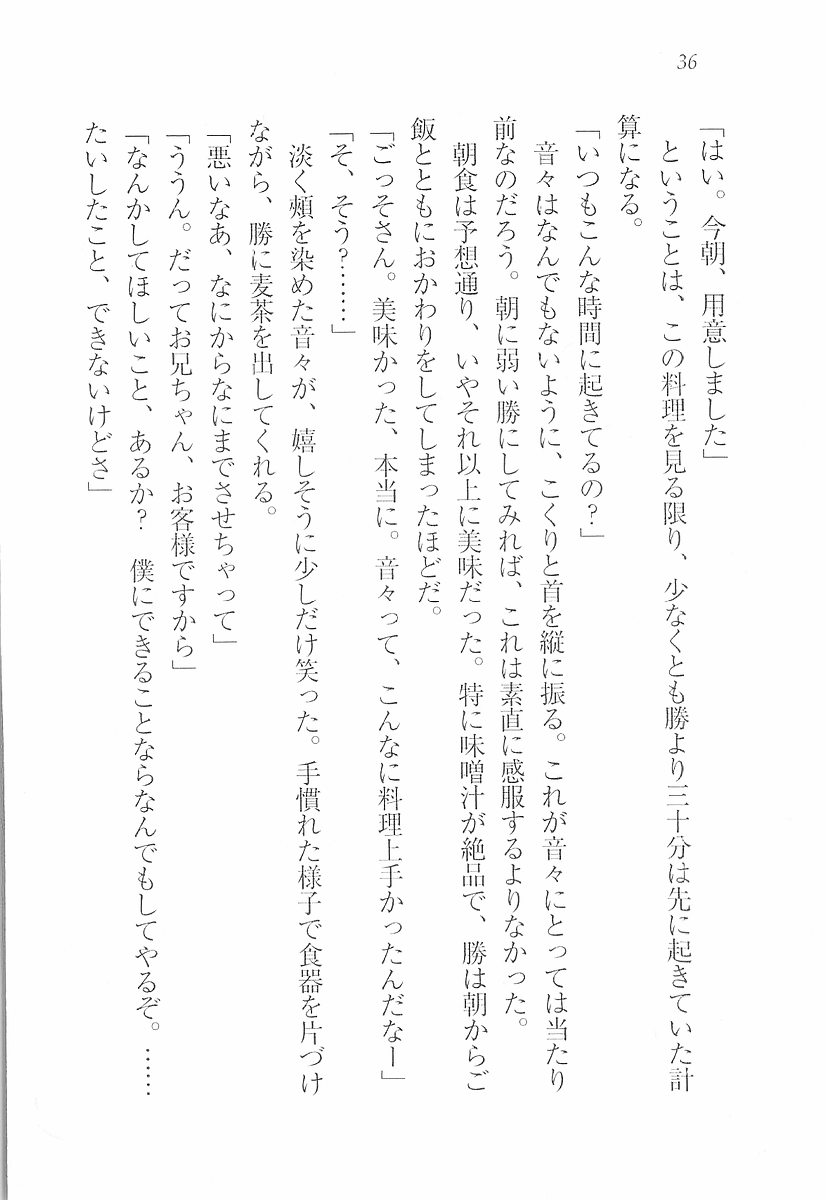 36
「はい。今朝、用意しました」
ということは、この料理を見る限り、少なくとも勝より三十分は先に起きていた計
算になる。
「いつもこんな時間に起きてるの？」
音々はなんでもないように、こくりと首を縦に振る。これが音々にとっては当たり
前なのだろう。朝に弱い勝にしてみれば、これは素直に感服するよりなかった。
朝食は予想通り、いやそれ以上に美味だった。特に味噌汁が絶品で、勝は朝からご
飯とともにおかわりをしてしまったほどだ。
「ごっそさん。美味かった、本当に。音々って、こんなに料理上手かったんだなー」
「そ、そう？……」
淡く頰を染めた音々が、嬉しそうに少しだけ笑った。手慣れた様子で食器を片づけ
ながら、勝に麦茶を出してくれる。
「悪いなあ、なにからなにまでさせちゃって」
「ううん。だってお兄ちゃん、お客様ですから」
「なんかしてほしいこと、あるか？　僕にできることならなんでもしてやるぞ。……
たいしたこと、できないけどさ」